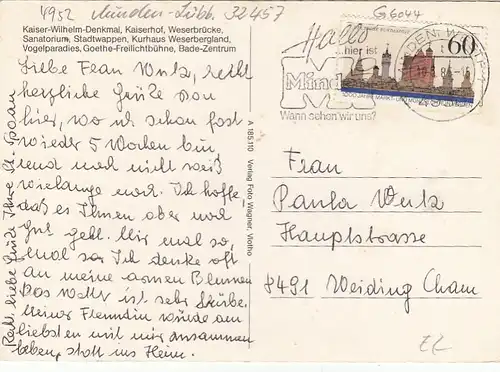 4952 Minden-Lübb. 32457
G6044
Kaiser-Wilhelm-Denkmal, Kaiserhof, Weserbrücke,
Sanatorium, Stadtwappen, Kurhaus Weserbergland,
Vogelparadies, Goethe-Freilichtbühne, Bade-Zentrum
Liebe Frau Wutz, recht
herzliche Grüße von
hier, wo ich schon fast
wieder 5 Wochen bin
und noch nicht weiß
wielange noch. Ich hoffe,
daß es Ihnen aber noch
gut geht. Mir mal so,
mal so. Ich denke oft
an meine armen Blumen
Das Wetter ist sehr trübe.
Meiner Freundin würde am
liebsten mit mir zusammen
leben, statt ins Heim.
Recht liebe Grüße Ihre
A 185.110 Verlag Foto Wagner, Vlotho
Hallo
...hier ist
Minden
Wann sehen wir uns?
60
Frau
Paula Wutz
Hauptstrasse
8491 Weiding Cham